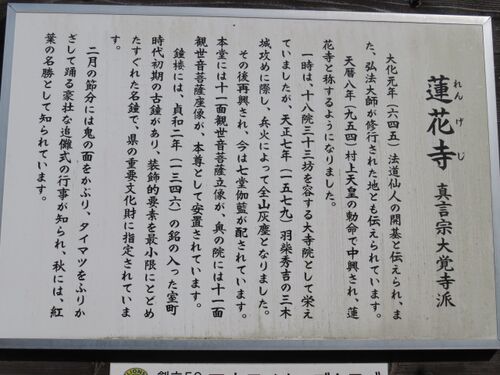 れんげじ
蓮花寺 真言宗大覚寺派
大化元年(六四五)法道仙人の開基と伝えられ、ま
た、弘法大師が修行された地とも伝えられています。
天暦八年(九五四)村上天皇の勅命で中興され、蓮
花寺と称するようになりました。
一時は、十八院三十三坊を容する大寺院として栄え
ていましたが、天正七年(一五七九)羽柴秀吉の三木
城攻めに際し、兵火によって全山灰塵となりました。
その後再興され、今は七堂伽藍が配されています。
本堂には十一面観世音菩薩立像が、奥の院には十一面
観世音菩薩座像が、本尊として安置されています。
鐘楼には、貞和二年(一三四六)の銘の入った室町
時代初期の古鐘があり、装飾的要素を最小限にとどめ
たすぐれた名鐘で、県の重要文化財に指定されていま
す。
二月の節分には鬼の面をかぶり、タイマツをふりか
ざして踊る豪壮な追儺式の行事が知られ、秋には、紅
葉の名勝として知られています。
LIONS